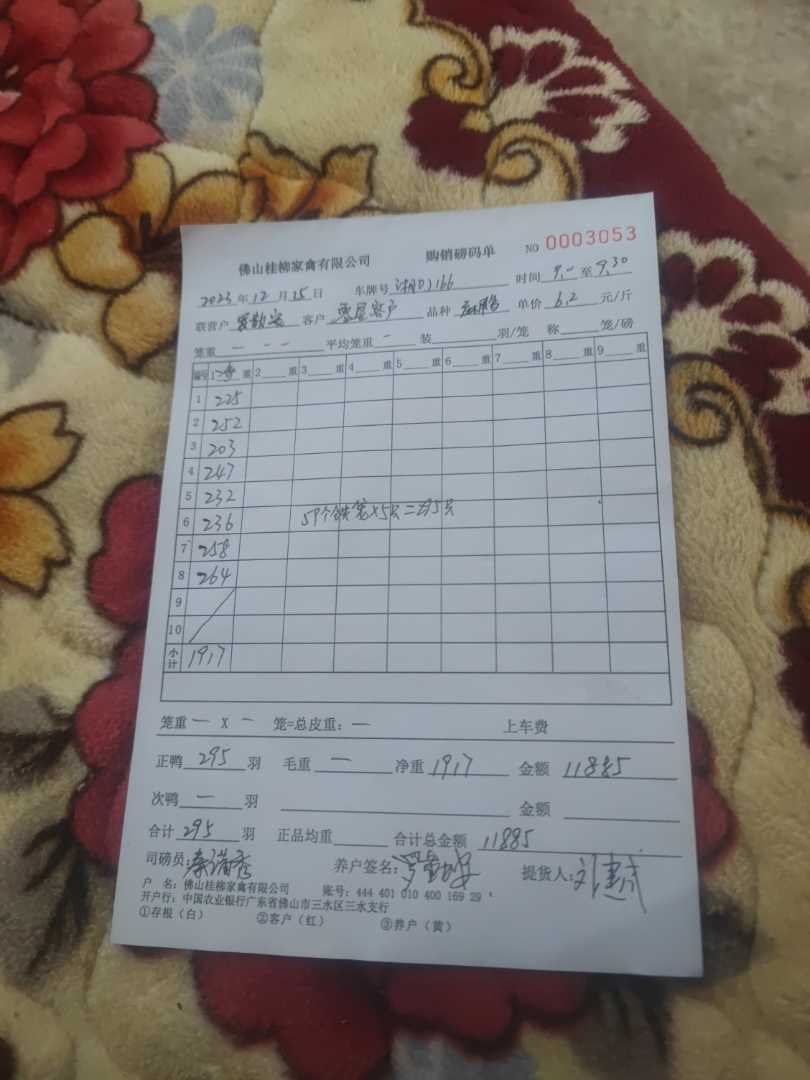 佛山桂柳家禽有限公司 购销磅码单 NO 0003053
2023年12月15日 车牌号 166 时间 9.一至9.30
联营户 客户 零星客户 品种 单价 6.2 元/斤
笼重 一 一 一 平均笼重 一 装 羽/笼 称 笼/磅
编号 1 重 2 重 3 重 4 重 5 重 6 重 7 重 8 重 9 重
1 225
2 252
3 203
4 247
5 232
6 236 59个铁笼×5只=295只
7 258
8 264
9
10
小计 1917
笼重 一 X 一 笼=总皮重: 一 上车费
正鸭 295 羽 毛重 一 净重 1917 金额 11885
次鸭 一 羽 金额
合计 295 羽 正品均重 合计总金额 11885
司磅员: 养户签名: 提货人:
户 名: 佛山桂柳家禽有限公司 账号: 444 401 010 400 169 29
开户行: 中国农业银行广东省佛山市三水区三水支行
①存根(白) ②客户(红) ③养户(黄)